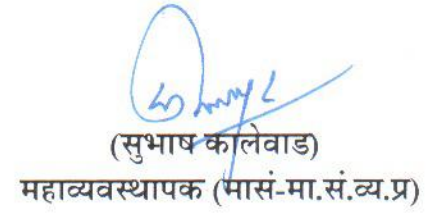 (सुभाष कालेवाड)
महाव्यवस्थापक (मासं-मा.सं.व्य.प्र)